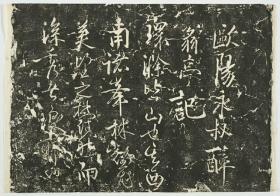 歐陽永叔醉
翁亭記
環滁皆山也其西
南諸峯林壑尤
美望之蔚然而
深秀者